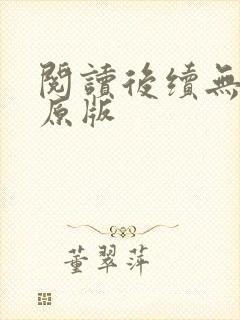 閱讀後續無
原版
董翠萍